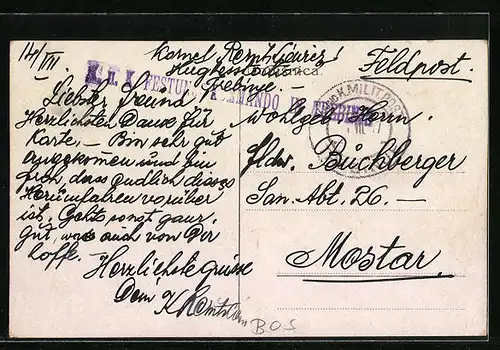 14/VII
Feldpost.
K. u. K. FESTUNGSKOMMANDO IN TREBINJE
Trebinje.
Liebster Freund
Herzlichsten Dank für
Karte. - Bin sehr gut
angekommen und bin
froh, dass endlich dieses
Herumfahren vorüber
ist. Geht sonst ganz
gut, was auch von Dir
hoffe.
Herzlichste Grüsse
Dein K.
Wohlgeb Herrn
Fldw. Buchberger
San. Abt. 26 -
Mostar.
K.u.K. MILIT. POST
BOS